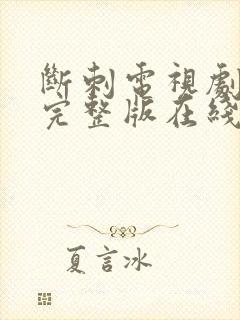 斷刺電視劇
完整版在綫
夏言冰